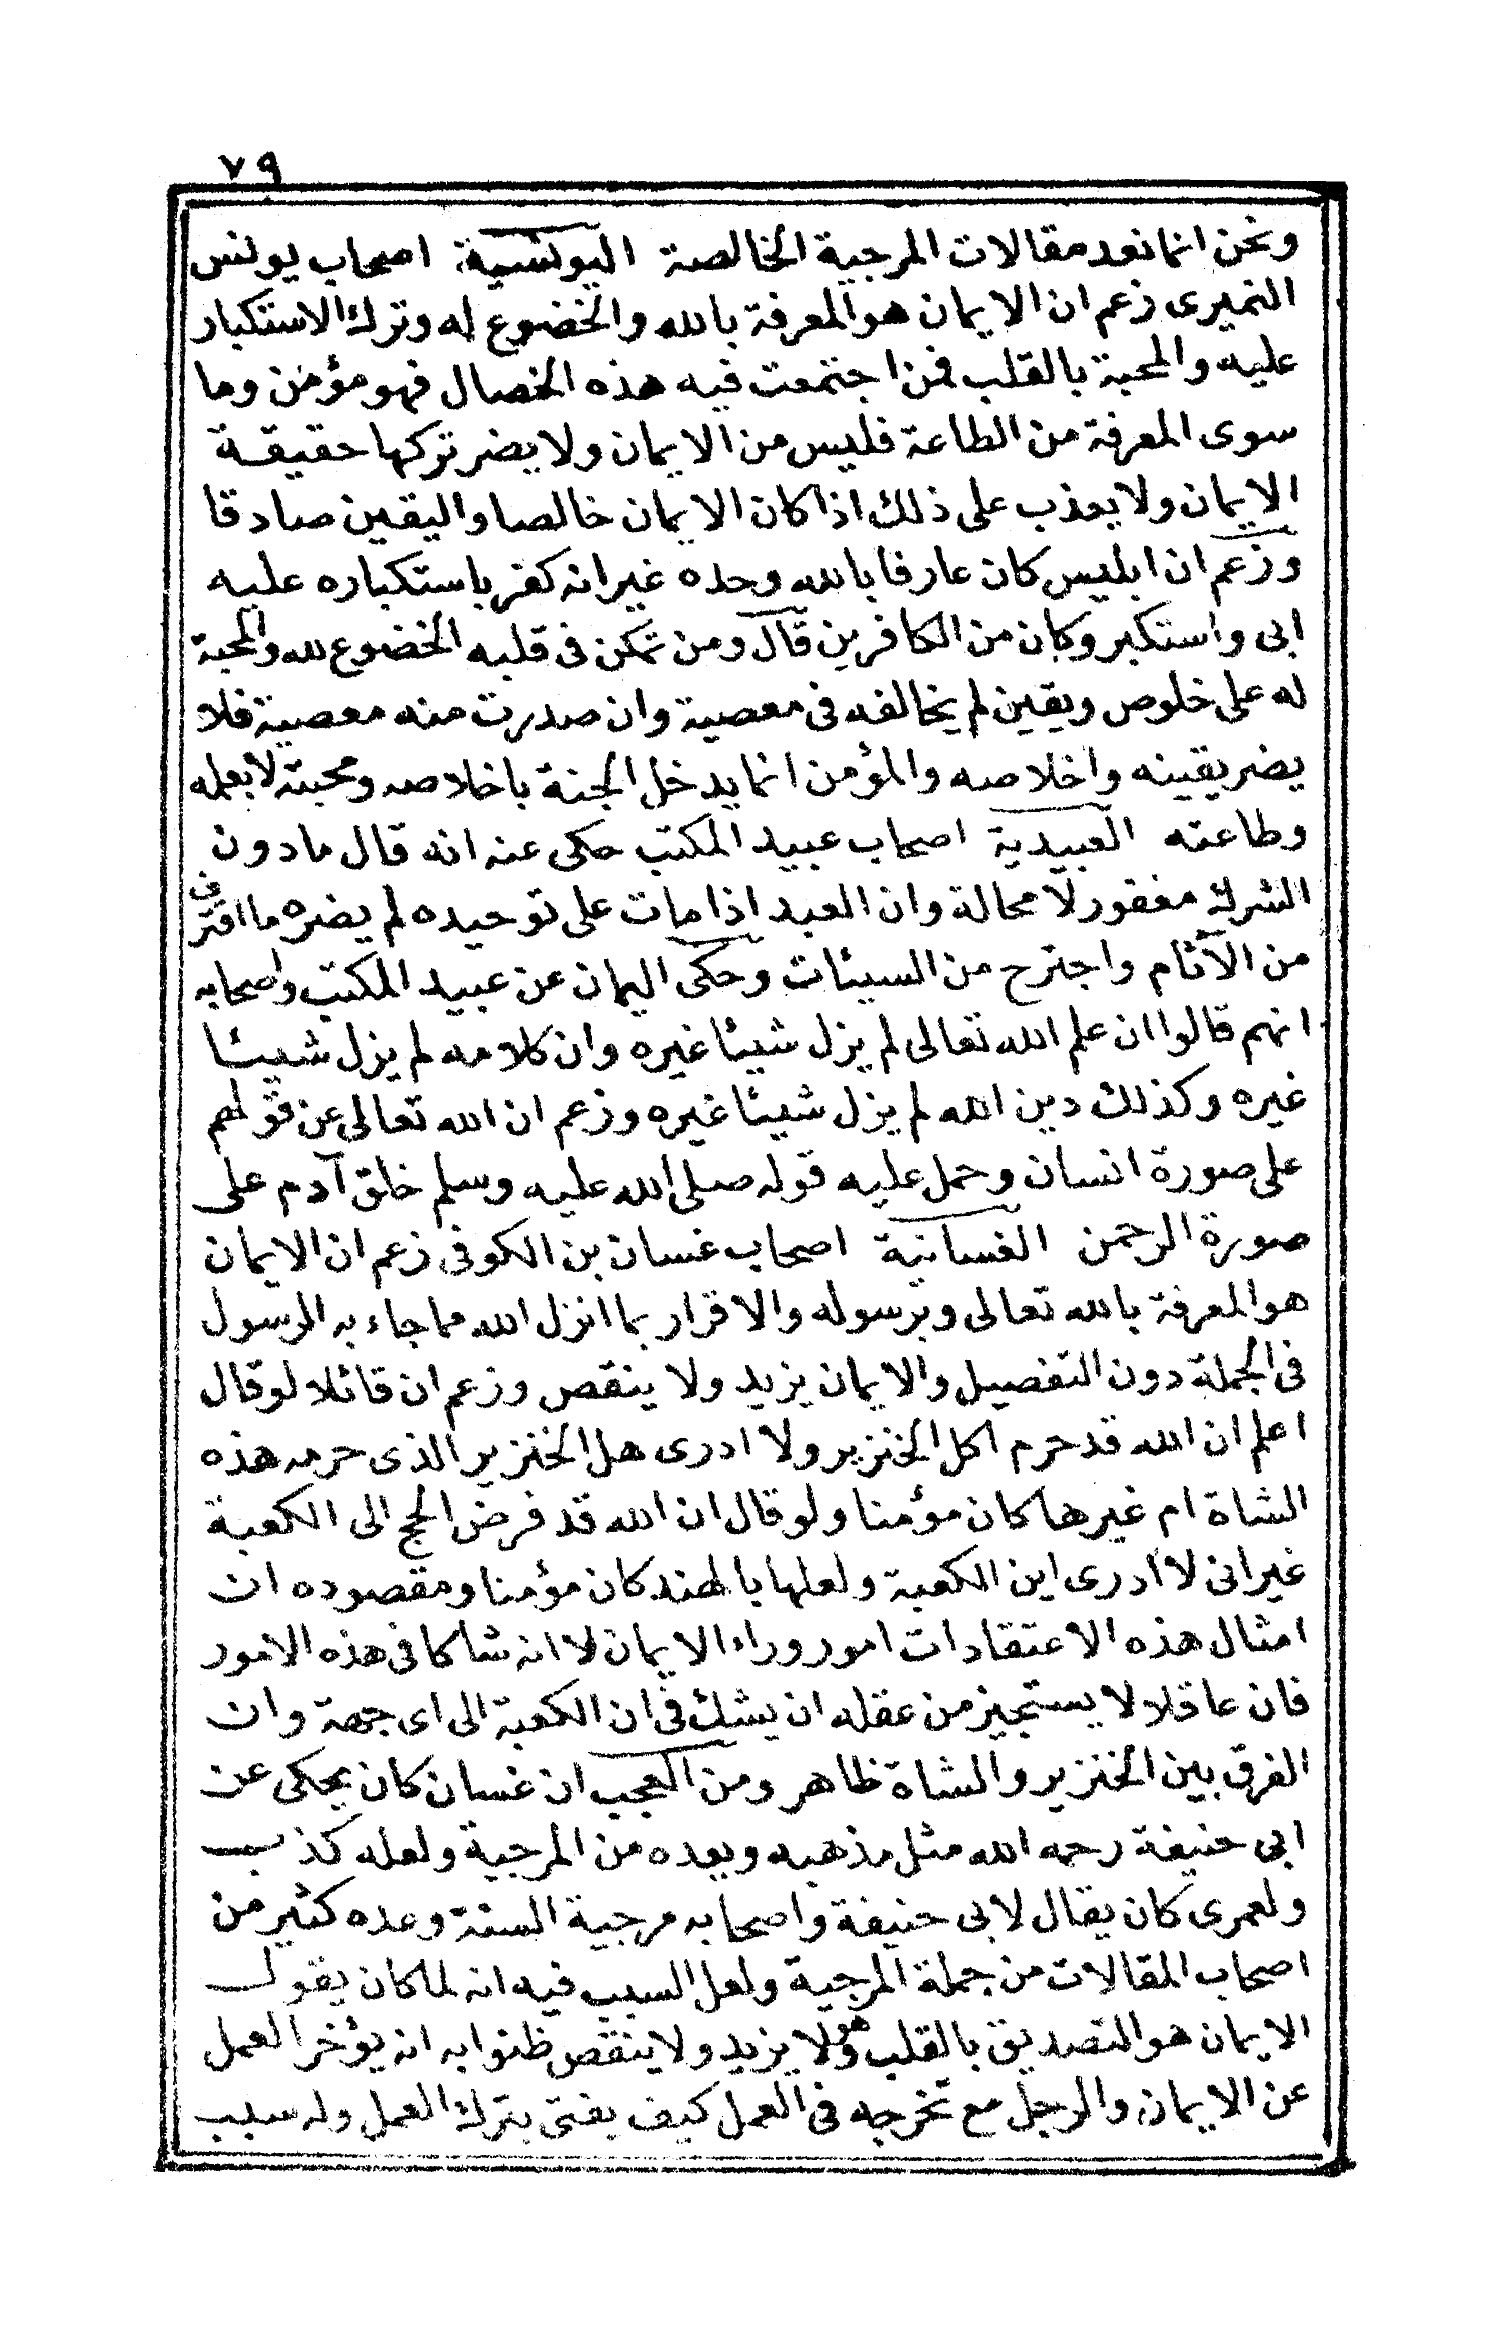 ٧٩
ونحن انما نعد مقالات المرجية الخالصة اليونسية اصحاب يونس
النميرى زعم ان الايمان هو المعرفة بالله والخضوع له وترك الاستكبار
عليه والمحبة بالقلب فمن اجتمعت فيه هذه الخصال فهو مؤمن وما
سوى المعرفة من الطاعة فليس من الايمان ولا يضر تركها حقيقة
الايمان ولا يعذب على ذلك اذا كان الايمان خالصا واليقين صادقا
وزعم ان ابليس كان عارفا بالله وحده غير انه كفر باستكباره عليه
ابى واستكبر وكان من الكافرين قال ومن تمكن فى قلبه الخضوع لله والمحبة
له على خلوص ويقين لم يخالفه فى معصية وان صدرت منه معصية فلا
يضر يقينه واخلاصه والمؤمن انما يدخل الجنة باخلاصه ومحبته لا بعمله
وطاعته العبيدية اصحاب عبيد المكتب حكى عنه انه قال ما دون
الشرك مغفور لا محالة وان العبد اذا مات على توحيده لم يضره ما اقترف
من الآثام واجترح من السيئات وحكى اليمان عن عبيد المكتب واصحابه
انهم قالوا ان علم الله تعالى لم يزل شيئا غيره وان كلامه لم يزل شيئا
غيره وكذلك دين الله لم يزل شيئا غيره وزعم ان الله تعالى عن قولهم
على صورة انسان وحمل عليه قوله صلى الله عليه وسلم خلق آدم على
صورة الرحمن الغسانية اصحاب غسان بن الكوفى زعم ان الايمان
هو المعرفة بالله تعالى وبرسوله والاقرار بما انزل الله مما جاء به الرسول
فى الجملة دون التفصيل والايمان يزيد ولا ينقص وزعم ان قائلا لو قال
اعلم ان الله قد حرم اكل الخنزير ولا ادرى هل الخنزير الذى حرمه هذه
الشاة ام غيرها كان مؤمنا ولو قال ان الله قد فرض الحج الى الكعبة
غير انى لا ادرى اين الكعبة ولعلها بالهند كان مؤمنا ومقصوده ان
امثال هذه الاعتقادات امور وراء الايمان لا انه شاكا فى هذه الامور
فان عاقلا لا يستجيز من عقله ان يشك فى ان الكعبة الى اى جهة وان
الفرق بين الخنزير والشاة ظاهر ومن العجب ان غسان كان يحكى عن
ابى حنيفة رحمه الله مثل مذهبه ويعده من المرجية ولعله كذب
ولعمرى كان يقال لابى حنيفة واصحابه مرجية السنة وعده كثير من
اصحاب المقالات من جملة المرجية ولعل السبب فيه انه لما كان يقول
الايمان هو التصديق بالقلب وهو لا يزيد ولا ينقص ظنوا به انه يؤخر العمل
عن الايمان والرجل مع تخرجه فى العمل كيف يفتى بترك العمل وله سبب